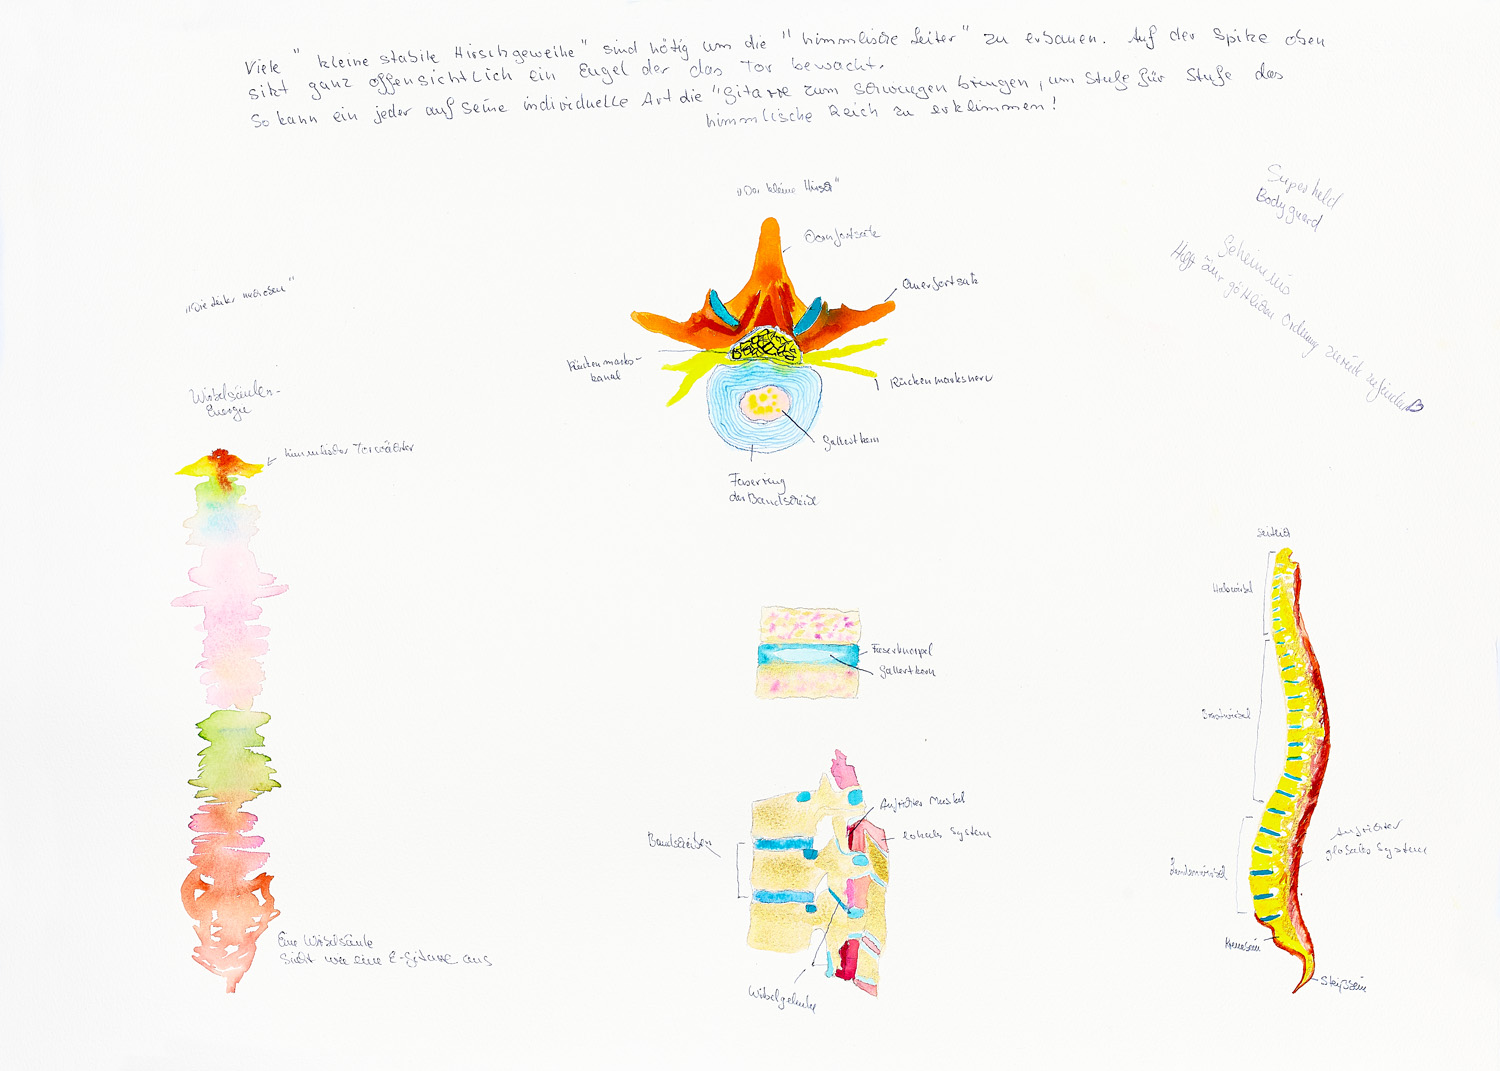 Viele "kleine stabile Hirschgeweihe" sind nötig um die "himmlische Leiter" zu erbauen. Auf der Spitze oben
sitzt ganz offensichtlich ein Engel der das Tor bewacht.
So kann ein jeder auf seine individuelle Art die "Gitarre zum schwingen bringen, um Stufe für Stufe das
himmlische Reich zu erklimmen!
"Der kleine Hirsch"
Dornfortsatz
Querfortsatz
Rückenmarks-
kanal
Rückenmarksnerv
Gallertkern
Faserring
der Bandscheibe
Superheld
Bodyguard
Geheimnis
Hilft zur göttlichen Ordnung zurück zu finden
"Die Leiter
Wirbelsäulen-
Energie
himmlischer Torwächter
Eine Wirbelsäule
sieht wie eine E-Gitarre aus
Faserknorpel
Gallertkern
Aufrichter Muskel
lokales System
Bandscheiben
Wirbelgelenke
seitlich
Halswirbel
Brustwirbel
Lendenwirbel
Aufrichter
globales System
Kreuzbein
Steißbein